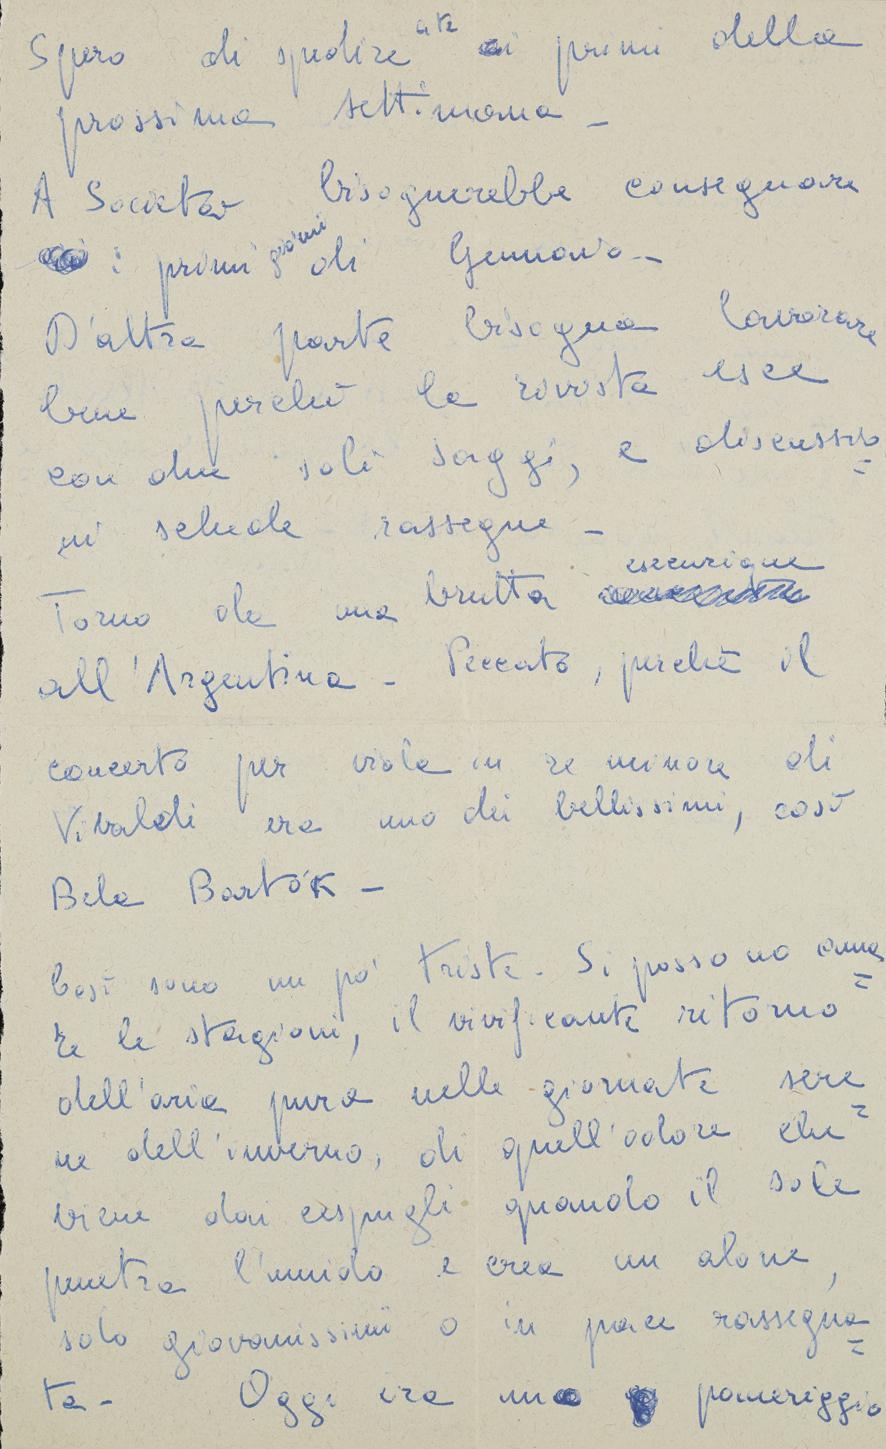 Spero di spedire a te ai primi della
prossima settimana -
A Società bisognerebbe consegnare
i primi giorni di Gennaio -
D'altra parte bisogna lavorare
bene perchè la rivista esce
con due soli saggi, e discussio=
ni schede rassegne -
Torno da una brutta esecuzione
all'Argentina - Peccato, perchè il
concerto per viola in re minore di
Vivaldi era uno dei bellissimi, così
Bela Bartók -
Così sono un po' triste. Si possono ama=
re le stagioni, il vivificante ritorno
dell'aria pura nelle giornate sere=
ne dell'inverno, di quell'odore che
viene dai cespugli quando il sole
penetra l'umido e crea un alone,
solo giovanissimi o in pace rassegna=
ta - Oggi era un pomeriggio